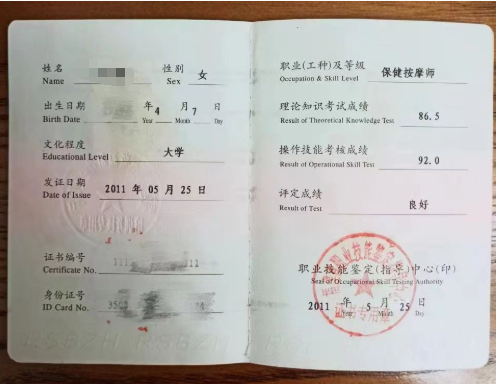 姓名 性别 女
Name Sex
出生日期 年 4 月 7 日
Birth Date Year Month Day
文化程度 大学
Educational Level
发证日期 2011 年 05 月 25 日
Date of Issue
证书编号
Certificate No.
身份证号
ID Card No.
职业(工种)及等级 保健按摩师
Occupation & Skill Level
理论知识考试成绩 86.5
Result of Theoretical Knowledge Test
操作技能考核成绩 92.0
Result of Operational Skill Test
评定成绩 良好
Result of Test
职业技能鉴定(指导)中心(印)
Seal of Occupational Skill Testing Authority
2011 年 5 月 25 日
Year Month Day